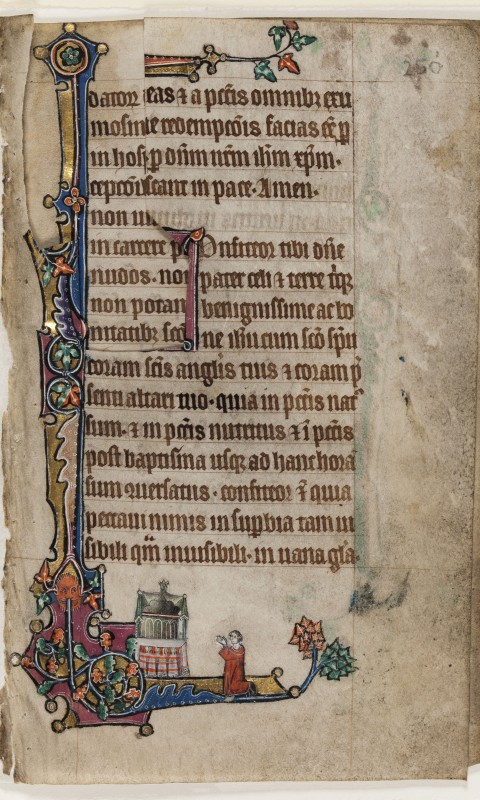 250
dator eas ⁊ a pc̄tis omnibꝫ exu
mosin le redempcōis facias
in hos ꝑ dn̄m nr̄m ih̄m xp̄m.
cepcōi scant in pace. Amen.
non ui
in carcere onfiteor tibi dn̄e
nudos. non pater celi ⁊ terre tꝫ
non potaui benignissime ac bo
nitatibꝫ scō ne ih̄u cum scō sp̄u
coram scīs angl̄is tuis ⁊ coram p̄
senti altari tuo. quia in pc̄tis natꝰ
sum. ⁊ in pc̄tis nutritus ⁊ ī pc̄tis
post baptisma usqꝫ ad hanc horā
sum uersatus. confiteor quia
peccaui nimis in suꝑbia tam ui
sibili qm̄ inuisibili. in uana gl̄a.